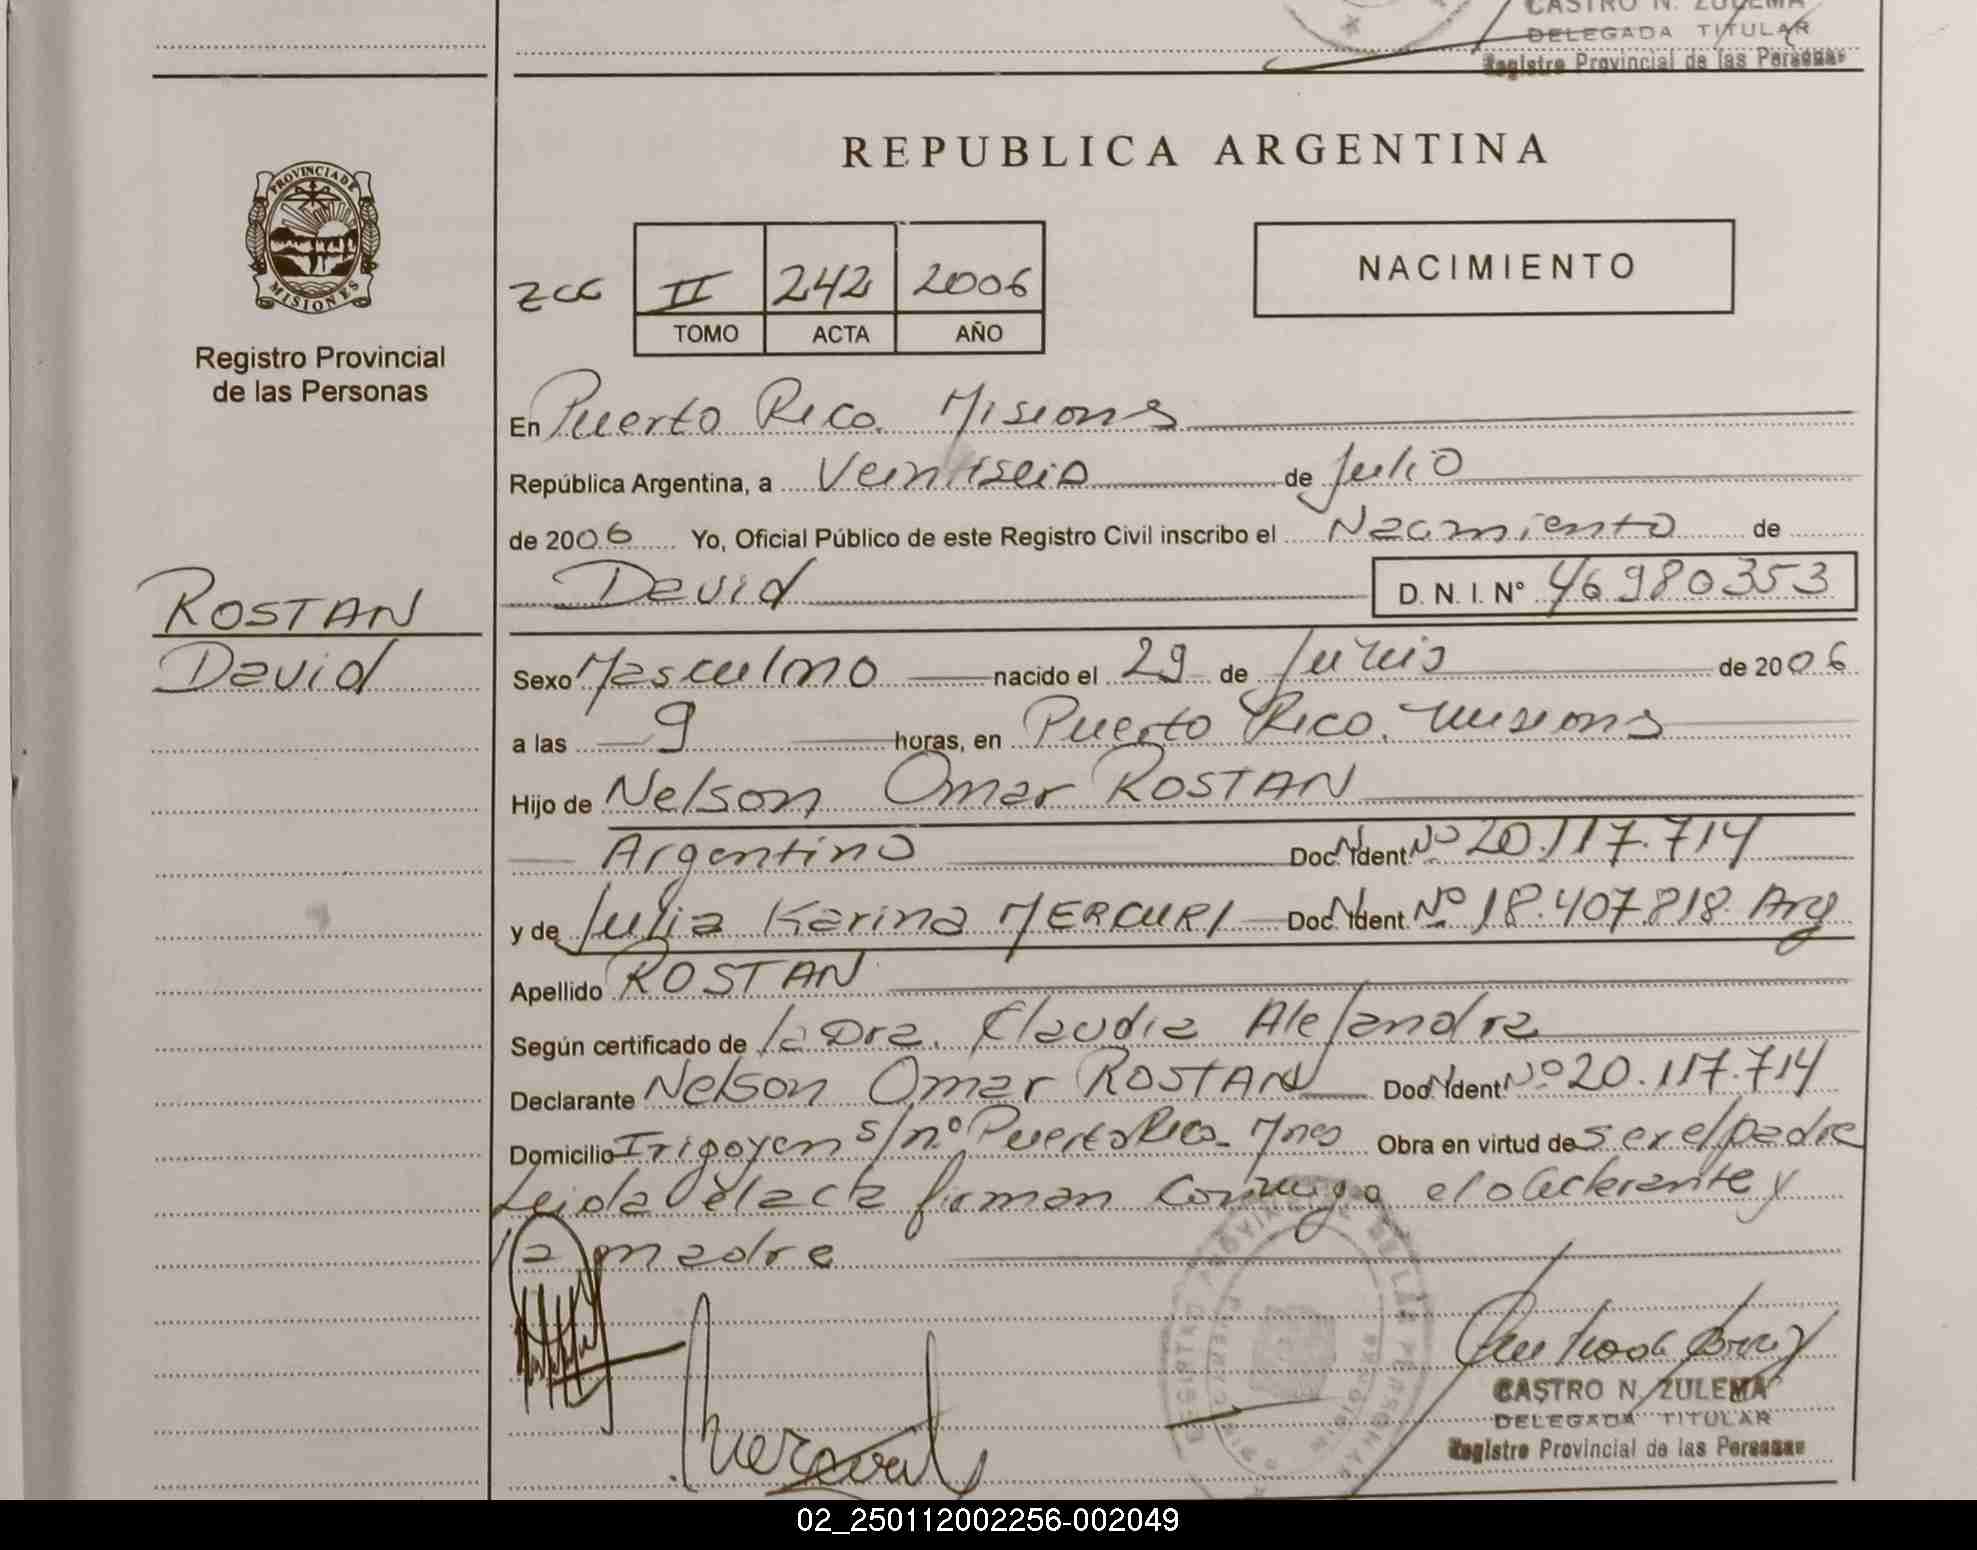 CASTRO N. ZULEMA
DELEGADA TITULAR
Registro Provincial de las Personas
REPUBLICA ARGENTINA
PROVINCIA DE
MISIONES
Registro Provincial
de las Personas
II 242 2006
TOMO ACTA AÑO
NACIMIENTO
En Puerto Rico. Misiones
República Argentina, a Veintiseis de Julio
de 2006 Yo, Oficial Público de este Registro Civil inscribo el Nacimiento de
David D. N. I. Nº 46980353
ROSTAN
David
Sexo Masculino nacido el 29 de Junio de 2006
a las 9 horas, en Puerto Rico. Misiones
Hijo de Nelson Omar ROSTAN
Argentino Doc. Ident Nº 20.117.714
y de Julia Karina MERCURI Doc. Ident. Nº 18.407.818. Arg
Apellido ROSTAN
Según certificado de la Dra. Claudia Alejandra
Declarante Nelson Omar ROSTAN Doc. Ident. Nº 20.117.714
Domicilio Irigoyen s/nº Puerto Rico. Mnes Obra en virtud de ser el padre
Leida el acta firman conmigo el declarante y
la madre
REGISTRO PROVINCIAL DE LAS PERSONAS
CASTRO N. ZULEMA
DELEGADA TITULAR
Registro Provincial de las Personas
02_250112002256-002049